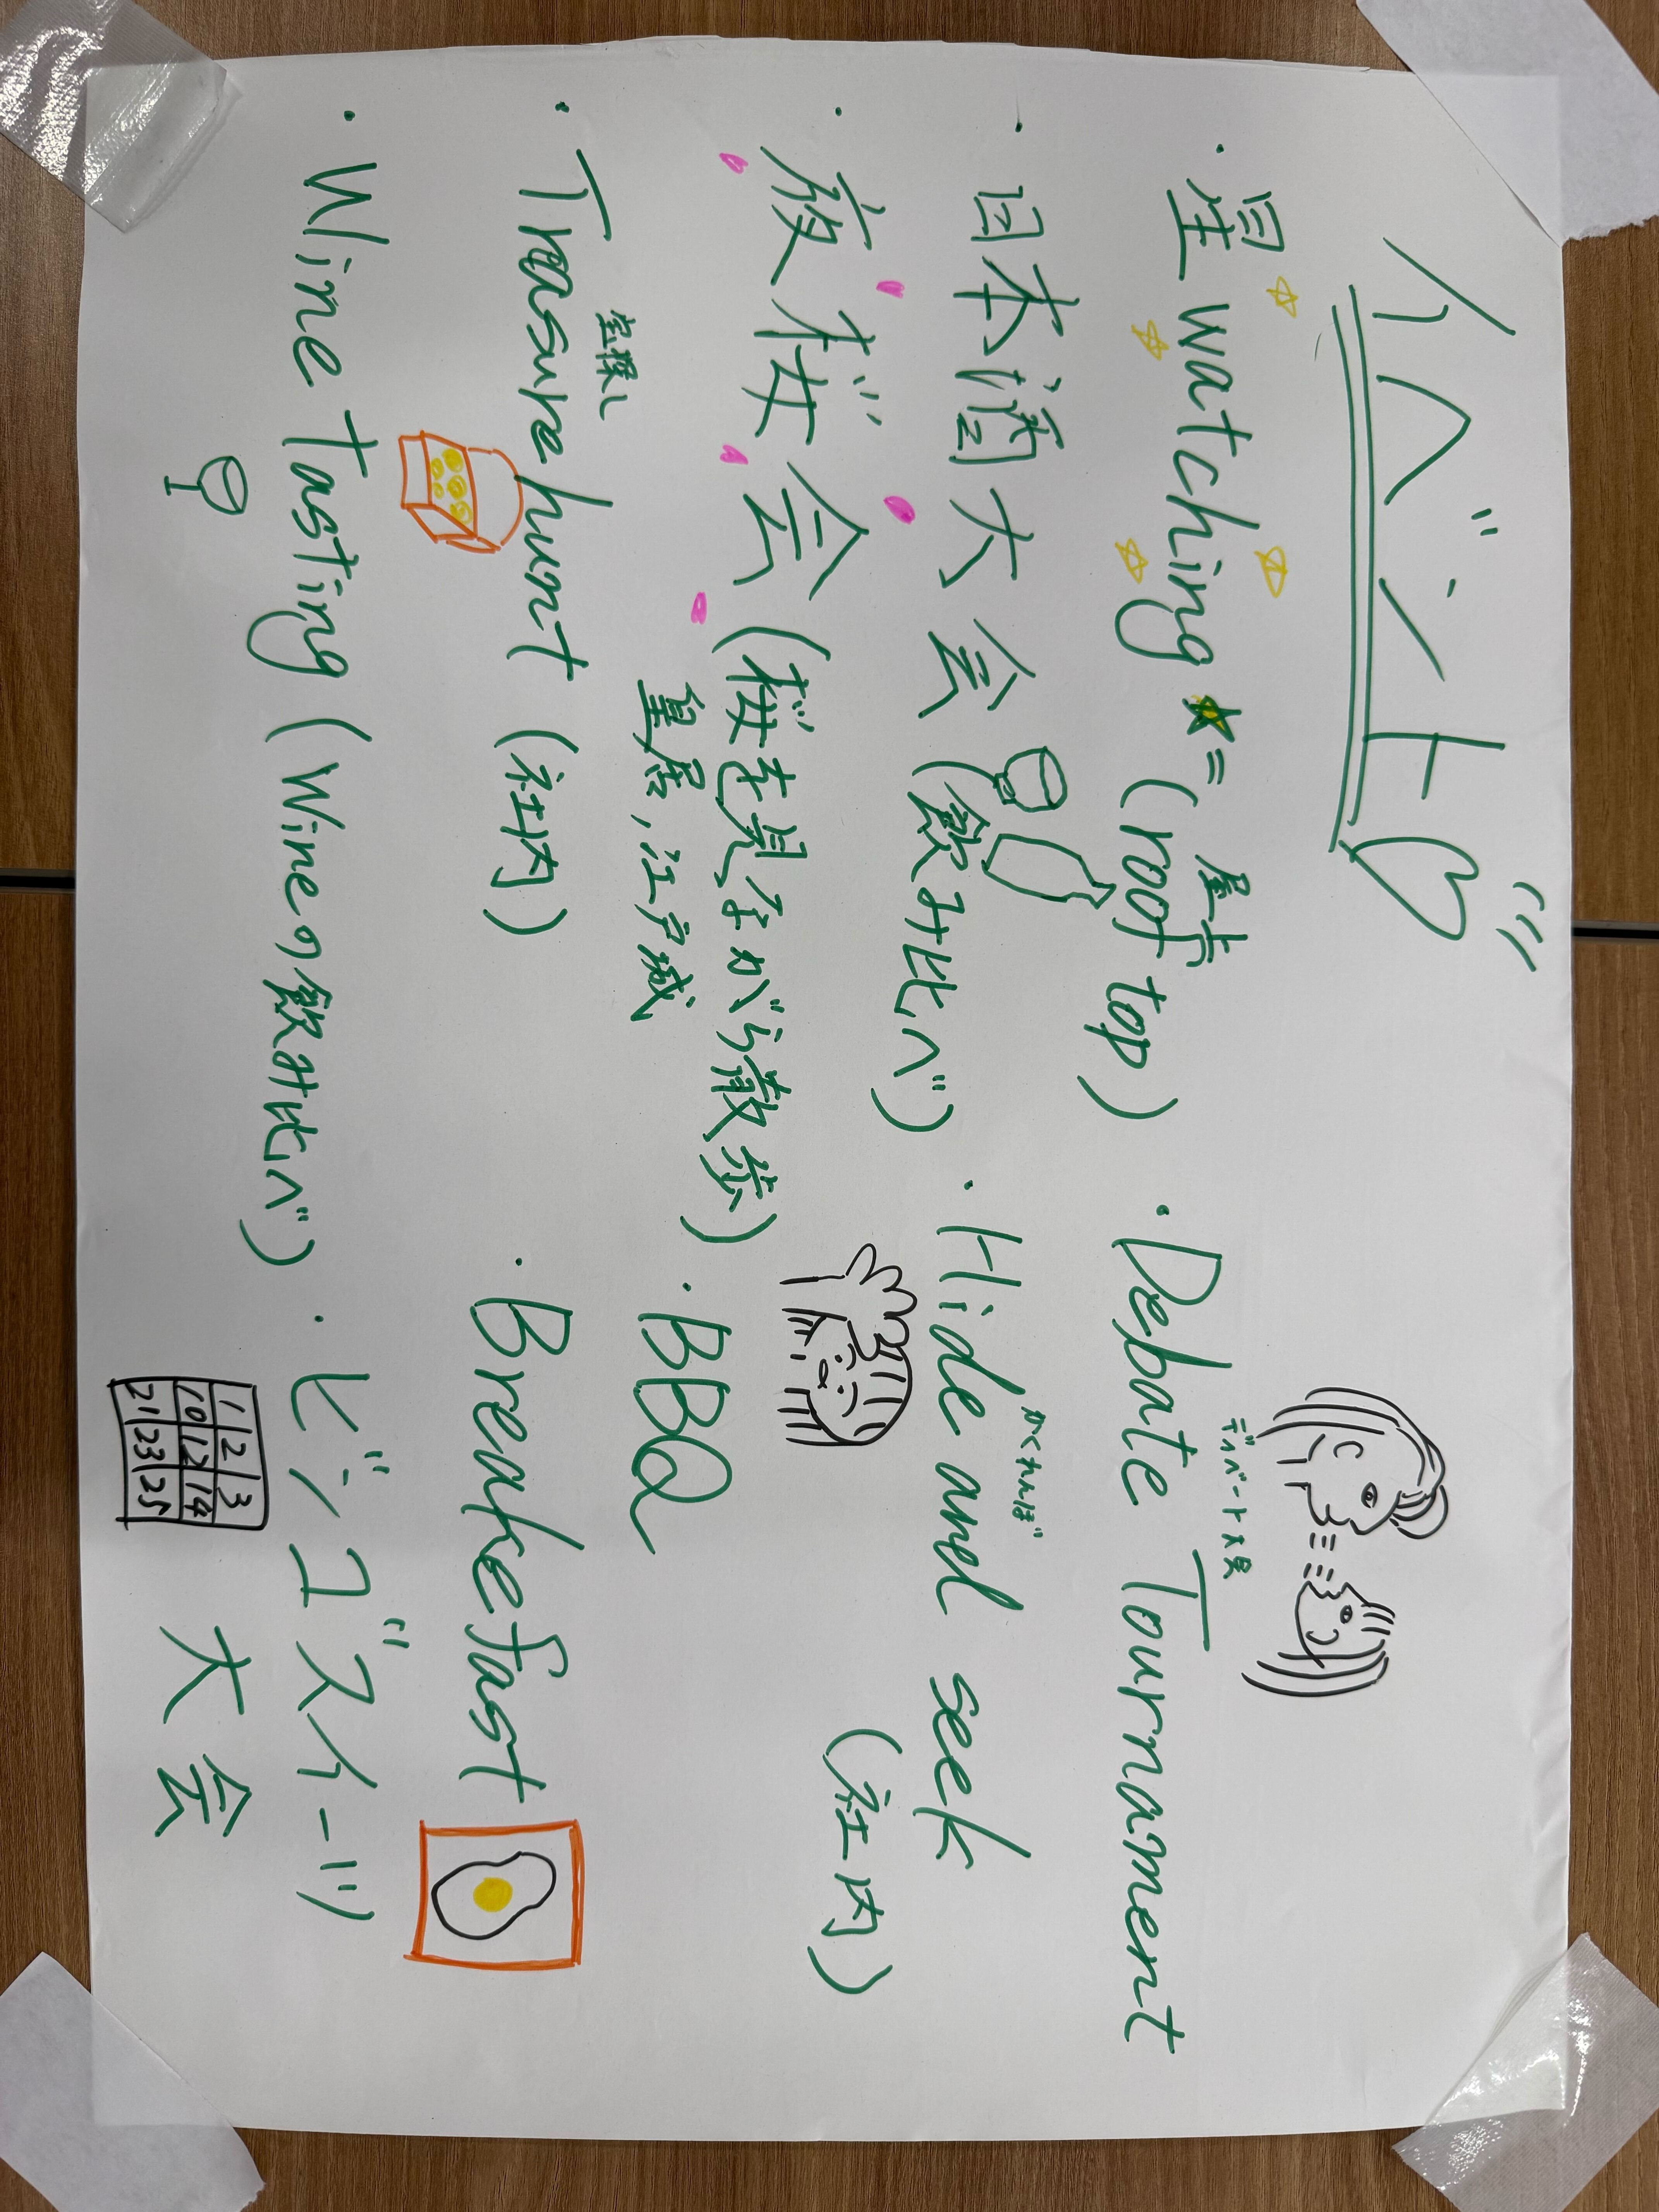 イベント
・星watching ☆=(roof top)
屋上
・日本酒大会(飲み比べ)
・夜桜会(桜を見ながら散歩)
皇居,江戸城
宝探し
・Treasure hunt (社内)
・Wine Tasting (Wineの飲み比べ)
ディベート大会
・Debate Tournament
かくれんぼ
・Hide and seek
(社内)
・BBQ
・Breakefast
・ビンゴスイーツ
大会
1 2 3
10 12 14
21 23 25